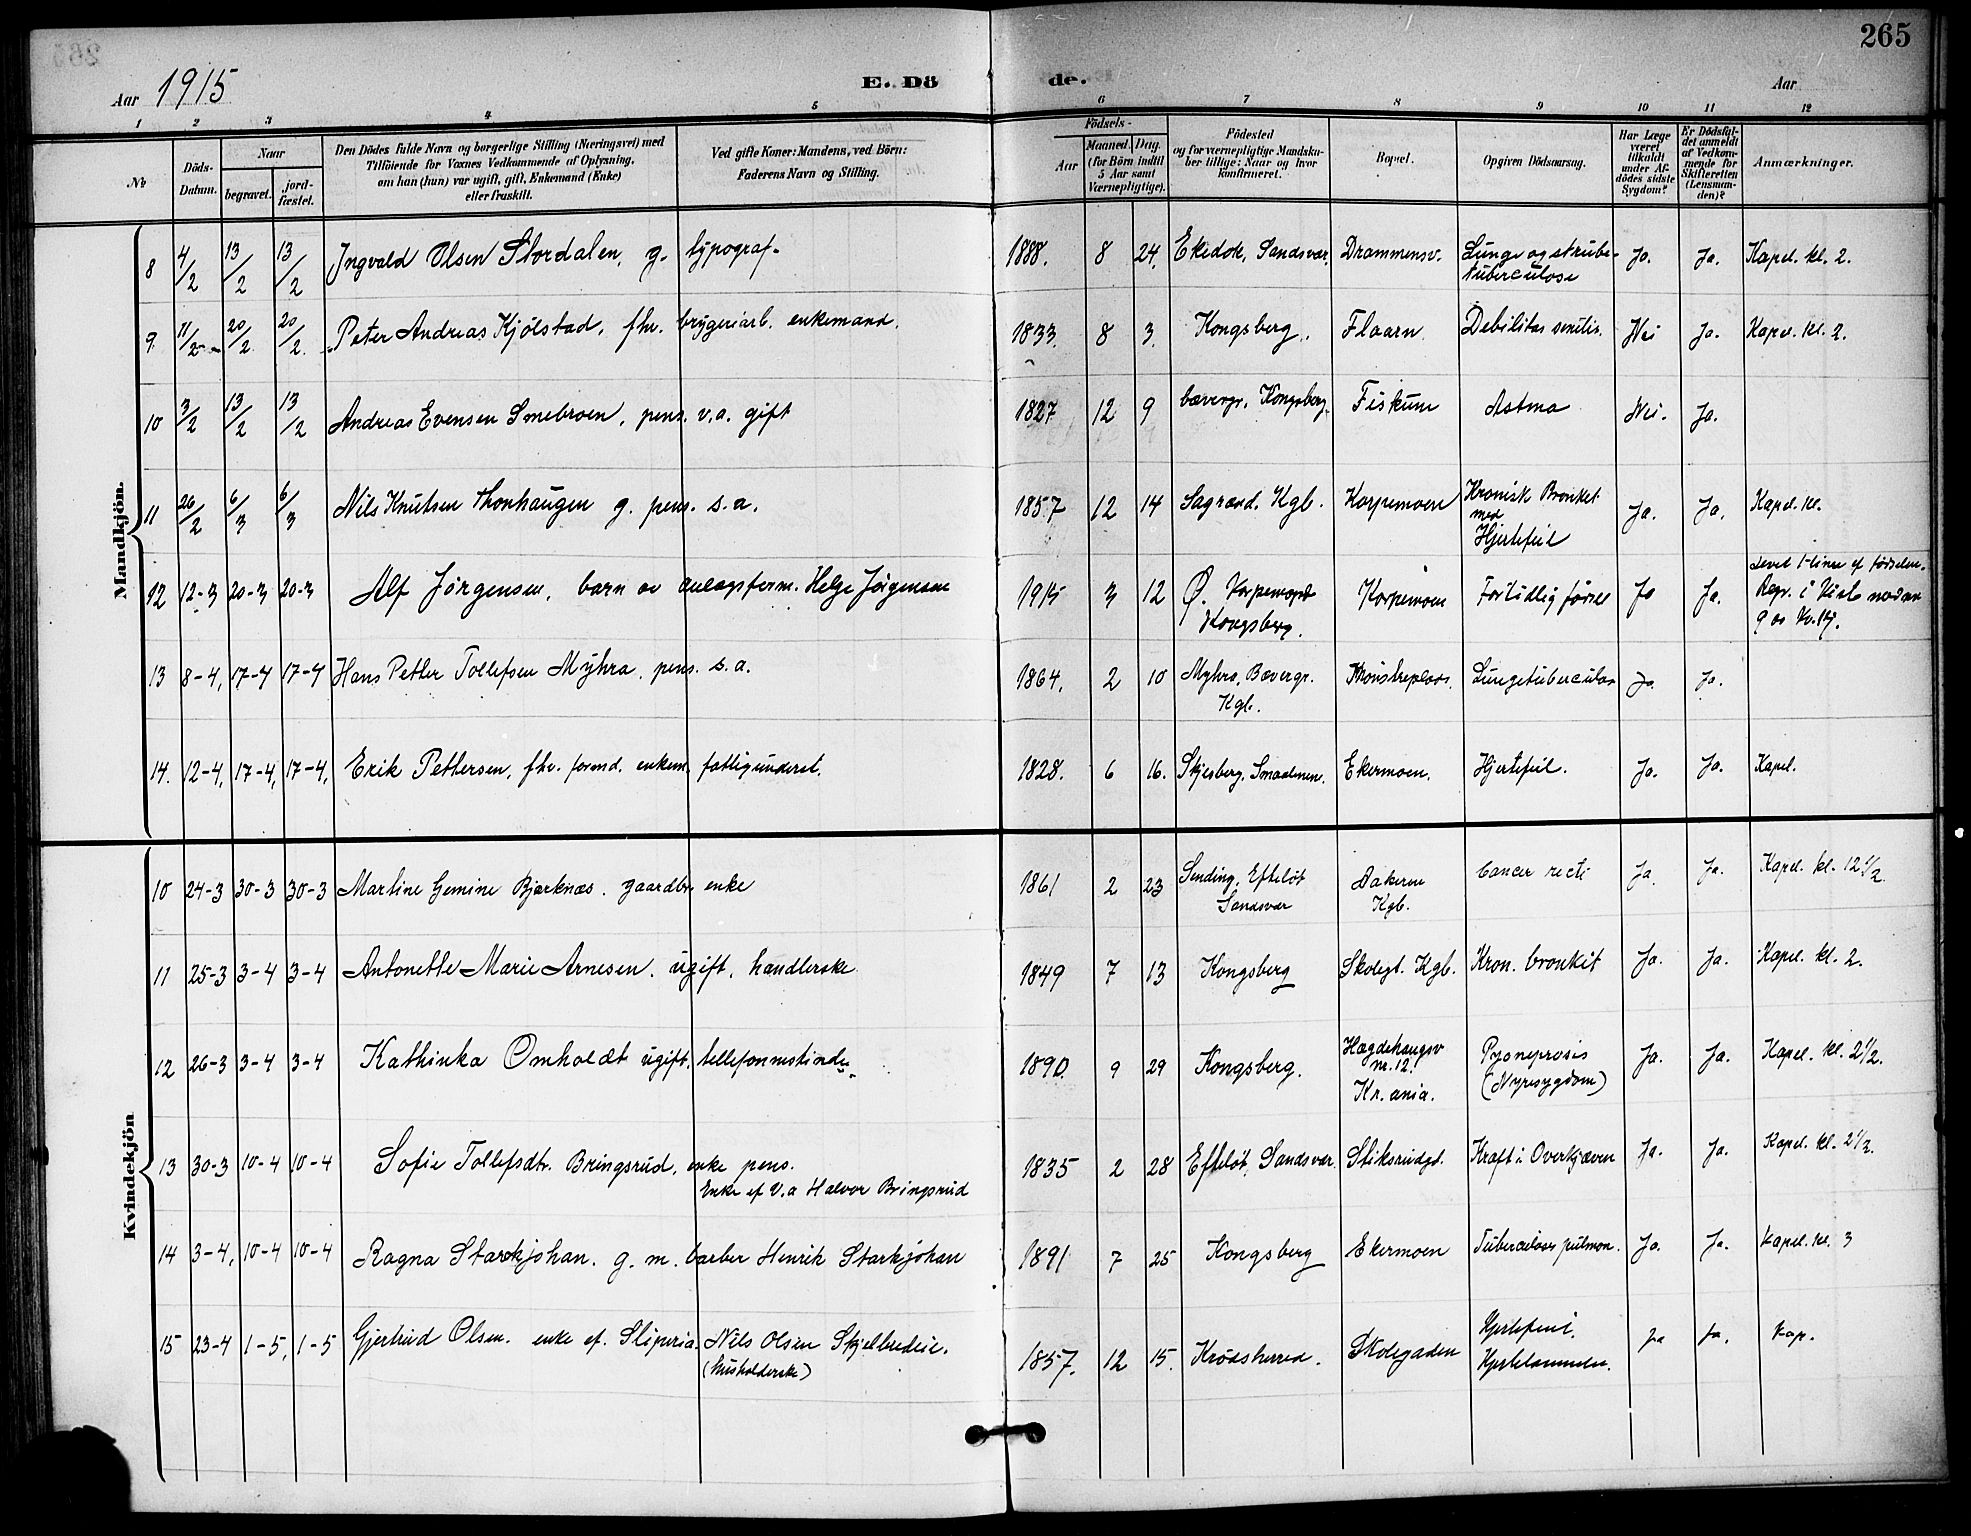 265
Aar 1915 E. Dö de. Aar
1 2 3 4 5 6 7 8 9 10 11 12
№
Döds-Datum.
Naar
begravet.
jord-fæstet.
Den Dödes fulde Navn og borgerlige Stilling (Næringsvei) med
Tilföiende for Voxnes Vedkommende af Oplysning,
om han (hun) var ugift, gift, Enkemand (Enke)
eller fraskilt.
Ved gifte Koner: Mandens, ved Börn:
Faderens Navn og Stilling.
Födsels-
Aar
Maaned. Dag.
(for Börn indtil
5 Aar samt
Værnepligtige).
Födested
og for værnepligtige Mandskaber tillige: Naar og hvor
konfirmeret.
Bopæl.
Opgiven Dödsaarsag.
Har Læge
været
tilkaldt
under Afdödes sidste
Sygdom?
Er Dödsfaldet anmeldt
af Vedkommende for
Skifteretten
(Lensmanden)?
Anmærkninger.
Mandkjön.
8 4/2 13/2 13/2 Ingvald Olsen Stordalen, g. typograf. 1888. 8 24. Ekedok, Sandsvær. Drammensv. Lunge og strube-tuberculose Ja. Ja. Kapel. kl. 2.
9 11/2 20/2 20/2 Peter Andreas Kjölstad, fhv. bryggeriarb. enkemand. 1833. 8 3. Kongsberg. Floarn. Debilitas senilis. Nei Ja. Kapel. kl. 2.
10 3/2 13/2 13/2 Andreas Evensen Smebroen, pens. v.a. gift 1827 12 9 bævergr. Kongsberg. Fiskum Astma Nei. Ja.
11 26/2 6/3 6/3 Nils Knutsen Thonhaugen g. pens. s.a. 1857 12 14 Sagrænd. Kgb. Korpemoen Kronisk Bronket. med Hjertefeil Ja. Ja. Kapel. kl.
12 12-3 20-3 20-3 Alf Jørgensen, barn av anlægsform. Helge Jørgensen 1915 3 12 Ø. Korpemoen Kongsberg. Korpemoen For tidlig førsel Ja Ja. Levet 1 time ef. fødselen.
13 8-4, 17-4 17-4 Hans Petter Tollefsen Myhra, pens. s.a. 1864. 2 10 Myhra, Bævergr. Kgb. Lungetuberculos Ja. Ja.
14. 12-4, 17-4, 17-4, Erik Pettersen, fhv. formd. enkem. fattigunderst. 1828. 6 16. Skjeberg, Smaalenene. Ekermoen. Hjertefeil. Ja. Ja. Kapel.
Kvindekjön
10 24-3 30-3 30-3 Martine Gemine Bjerknæs. gaardbr. enke 1861 2 23 Sending, Efteløt Sandsvær Aakeren Kgb. Cancer recti Ja. Ja. Kapel. kl. 12 1/2.
11 25-3 3-4 3-4 Antonette Marie Arnesen. ugift, handlerske 1849 7 13 Kongsberg Skolegt. Kgb. Kron. bronkit Ja. Ja. Kapel. kl. 2.
12 26-3 3-4 3-4 Kathinka Omholdt ugift, tellefonmstinde. 1890. 9 29 Kongsberg. Hægdehaugsv nr. 12. Kr.ania. Pyoneprosis (Nyresygdom) Ja. Ja. Kapel. kl. 2 1/2.
13 30-3 10-4 10-4 Sofie Tollefsdtr. Bringsrud, enke pens.
Enke ef V.a Halvor Bringsrud 1835 2 28 Efteløt, Sandsvær. Stiksrudgt. Kræft i Overkjæven Ja. Ja. Kapel. kl. 2 1/2.
14 3-4, 10-4 10-4 Ragna Starkjohan. g. m. barber Henrik Starkjohan 1891 7 25 Kongsberg Ekermoen Tuberculoses pulmon. Ja. Ja. Kapel. kl. 3
15 23-4 1-5, 1-5 Gjertrud Olsen. enke ef. Sliperia. Nils Olsen Skjelbredeie.
(Husholderske) 1857. 12 15. Krødsherred. Skolegaden Hjertefeil. Ja Ja. Kap.